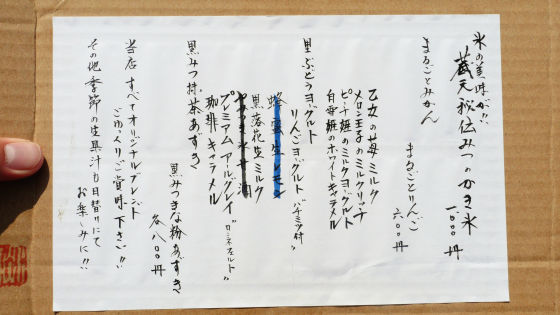 氷の美味が!!
蔵元秘伝みつのかき氷
一〇〇〇円
まるごとみかん
まるごとりんご
六〇〇円
乙女の苺ミルク
メロン王子のミルクリッチ
ピーチ姫のミルクヨーグルト
白雪姫のホワイトキャラメル
黒ぶどうヨーグルト
りんごヨーグルト"ハチミツ付"
蜂蜜生レモン
黒落花生ミルク
プレミアムアールグレイ"ロンネフェルト"
珈琲キャラメル
黒みつ抹茶あずき
黒みつきな粉あずき
各八〇〇円
当店すべてオリジナルブレンド
ごゆっくりご賞味下さい!!
その他季節の生果汁も日替りにて
お楽しみに!!